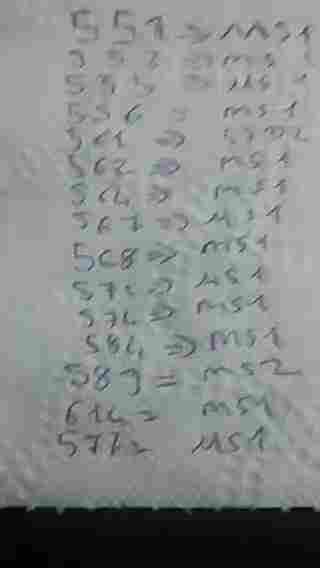 551 => MS1
552 => MS1
555 => MS1
556 = MS1
561 =>
562 => MS1
564 => MS1
567 => MS1
568 => MS1
571 => MS1
574 => MS1
584 => MS1
589 = MS2
614 = MS1
577 = MS1